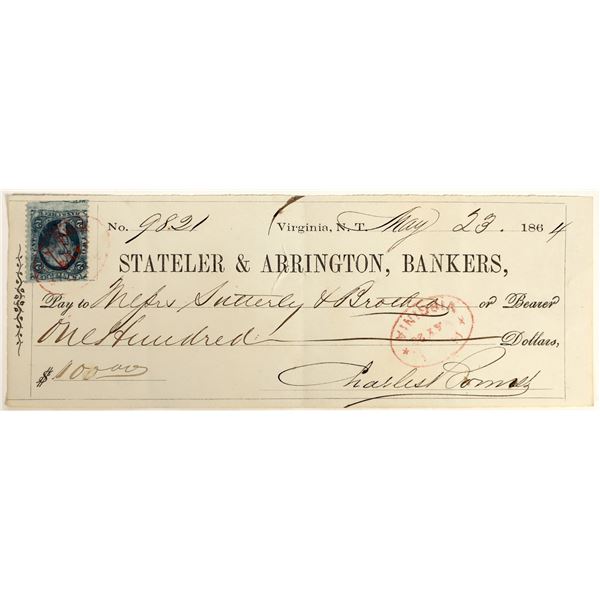 No. 9821 Virginia, N.T. May 23. 1864
STATELER & ARRINGTON, BANKERS,
Pay to Messrs Sutterly & Brothers or Bearer
One Hundred Dollars,
$ 100 00
Charles
VIRGINIA